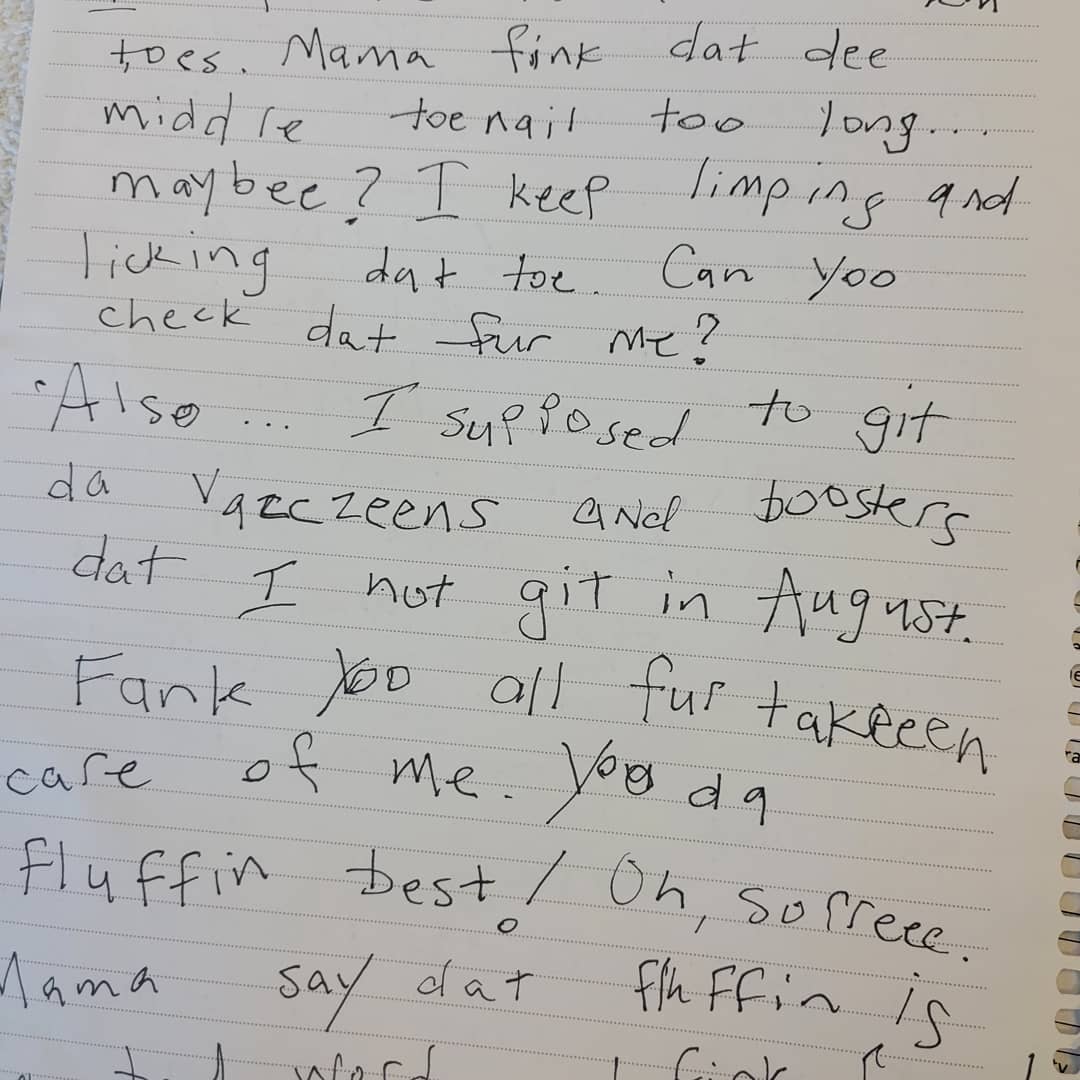 toes. Mama fink dat dee
middle toenail too long...
maybee? I keep limping and
licking dat toe. Can yoo
check dat fur me?
·Also... I supposed to git
da vacczeens and boosters
dat I not git in August.
Fank yoo all fur takeeen
care of me. Yoo da
fluffin best! Oh, sorreee.
Mama say dat fluffin is
word fink